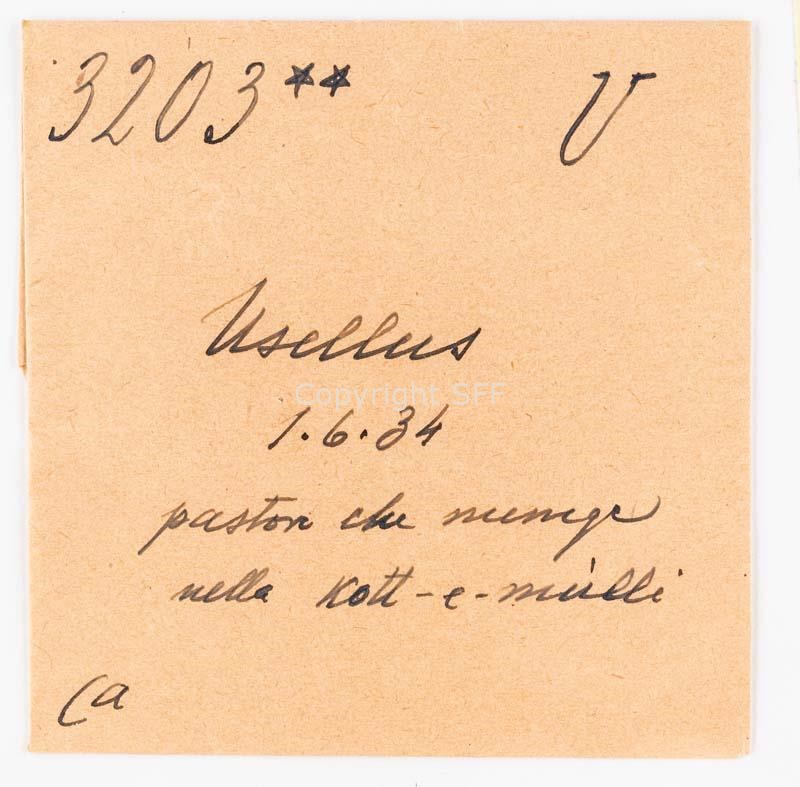 3203** V
Usellus
Copyright SFF
1.6.34
pastore che munge
nella Kott-e-mulli
Ca